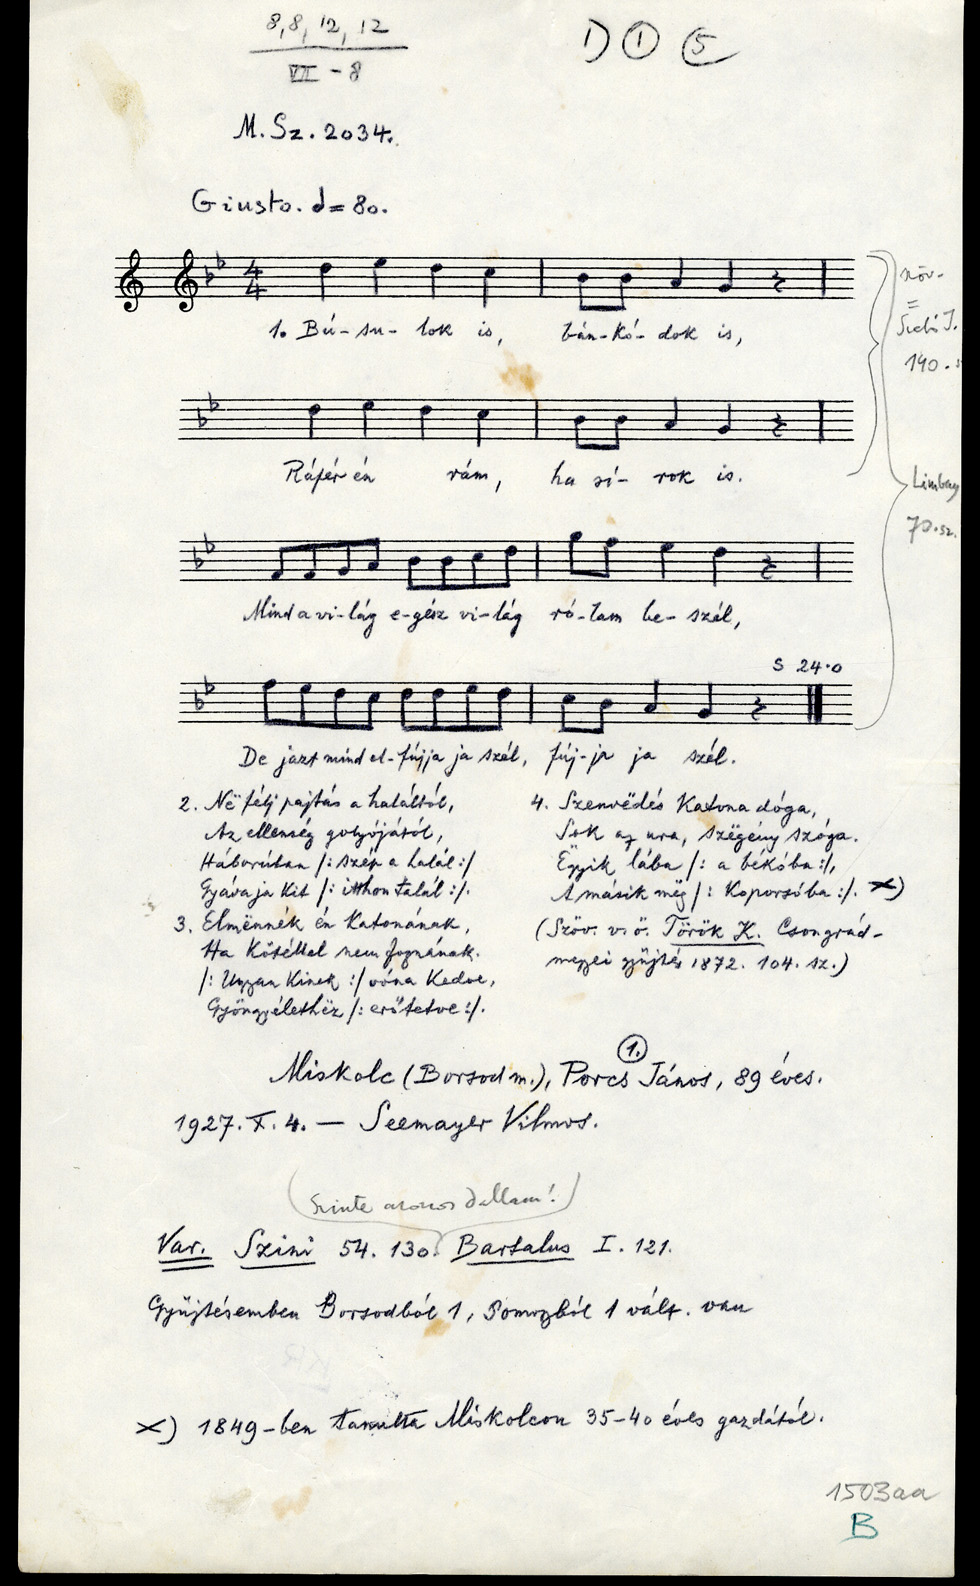 8, 8, 12, 12
VII - 8
1) ① ⑤
M. Sz. 2034.
Giusto. d = 80.
4
4
1. Bú - su - lok is, bán - kó - dok is,
szöv.
=
Szini J.
140.
Ráfér én rám, ha sí - rok is.
Limbay
70. sz.
Mind a vi - lág e - gész vi - lág ró - lam be - szél,
S 24.0
De jazt mind el - fújja ja szél, fúj - ja ja szél.
2. Në félj pajtás a haláltól,
Az ellenség golyójától,
Háborúban /: szép a halál :/
Gyáva ja kit /: itthon talál :/.
3. Elmënnék én katonának,
Ha kötéllel nem fognának.
/: Ugyan kinek :/ vóna kedve,
Gyöngyélethëz /: erőtetve :/.
4. Szenvëdés katona dóga,
Sok az ura, szëgény szóga.
Ëggyik lába /: a békóba :/,
A másik még /: koporsóba :/. x)
(Szöv. v. ö. Török K. Csongrád-
megyei gyűjtés 1872. 104. sz.)
1.
Miskolc (Borsod m.), Porcs János, 89 éves.
1927. X. 4. — Seemayer Vilmos.
(Szinte azonos dallam!)
Var. Szini 54. 130. Bartalus I. 121.
Gyűjtésemben Borsodból 1, Somogyból 1 vált. van
x) 1849-ben tanulta Miskolcon 35-40 éves gazdától.
1503aa
B